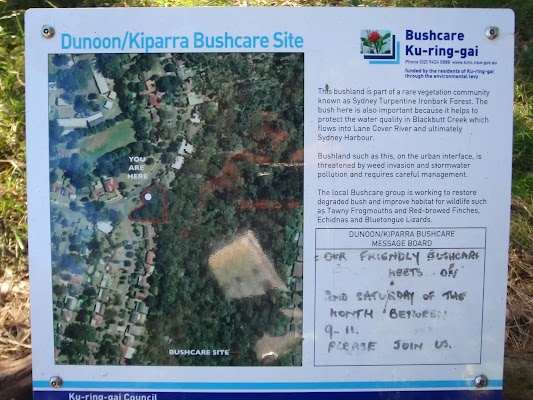 Dunoon/Kiparra Bushcare Site
YOU
ARE
HERE
BUSHCARE SITE
Bushcare
Ku-ring-gai
Phone (02) 9424 0888 www.kmc.nsw.gov.au
funded by the residents of Ku-ring-gai
through the environmental levy
This bushland is part of a rare vegetation community
known as Sydney Turpentine Ironbark Forest. The
bush here is also important because it helps to
protect the water quality in Blackbutt Creek which
flows into Lane Cover River and ultimately
Sydney Harbour.
Bushland such as this, on the urban interface, is
threatened by weed invasion and stormwater
pollution and requires careful management.
The local Bushcare group is working to restore
degraded bush and improve habitat for wildlife such
as Tawny Frogmouths and Red-browed Finches,
Echidnas and Bluetongue Lizards.
DUNOON/KIPARRA BUSHCARE
MESSAGE BOARD
OUR FRIENDLY BUSHCARE
MEETS ON
2ND SATURDAY OF THE
MONTH BETWEEN
9-11.
PLEASE JOIN US.
Ku-ring-gai Council